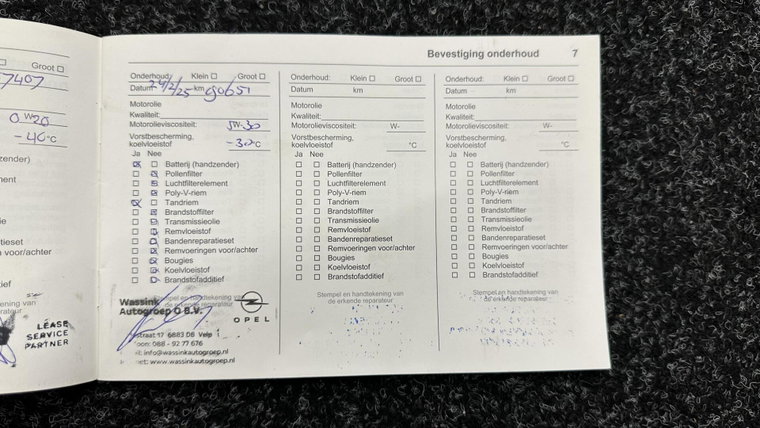 7407
Groot
0W20
-40°C
zender)
ment
e
atieset
voor/achter
ief
ening van
rateur
LEASE
SERVICE
PARTNER
Bevestiging onderhoud 7
Onderhoud: Klein Groot
Datum 24/2/25 km 90651
Motorolie
Kwaliteit:
Motorolieviscositeit: 5W-30
Vorstbescherming,
koelvloeistof -30°C
Ja Nee
Batterij (handzender)
Pollenfilter
Luchtfilterelement
Poly-V-riem
Tandriem
Brandstoffilter
Transmissieolie
Remvloeistof
Bandenreparatieset
Remvoeringen voor/achter
Bougies
Koelvloeistof
Brandstofadditief
Stempel en handtekening van
de erkende reparateur
Wassink
Autogroep O B.V.
OPEL
straat 17 6883 DB Velp
oon: 088 - 92 77 676
il: info@wassinkautogroep.nl
net: www.wassinkautogroep.nl
Onderhoud: Klein Groot
Datum km
Motorolie
Kwaliteit:
Motorolieviscositeit: W-
Vorstbescherming,
koelvloeistof °C
Ja Nee
Batterij (handzender)
Pollenfilter
Luchtfilterelement
Poly-V-riem
Tandriem
Brandstoffilter
Transmissieolie
Remvloeistof
Bandenreparatieset
Remvoeringen voor/achter
Bougies
Koelvloeistof
Brandstofadditief
Stempel en handtekening van
de erkende reparateur
Onderhoud: Klein Groot
Datum km
Motorolie
Kwaliteit:
Motorolieviscositeit: W-
Vorstbescherming,
koelvloeistof °C
Ja Nee
Batterij (handzender)
Pollenfilter
Luchtfilterelement
Poly-V-riem
Tandriem
Brandstoffilter
Transmissieolie
Remvloeistof
Bandenreparatieset
Remvoeringen voor/achter
Bougies
Koelvloeistof
Brandstofadditief
Stempel en handtekening van
de erkende reparateur